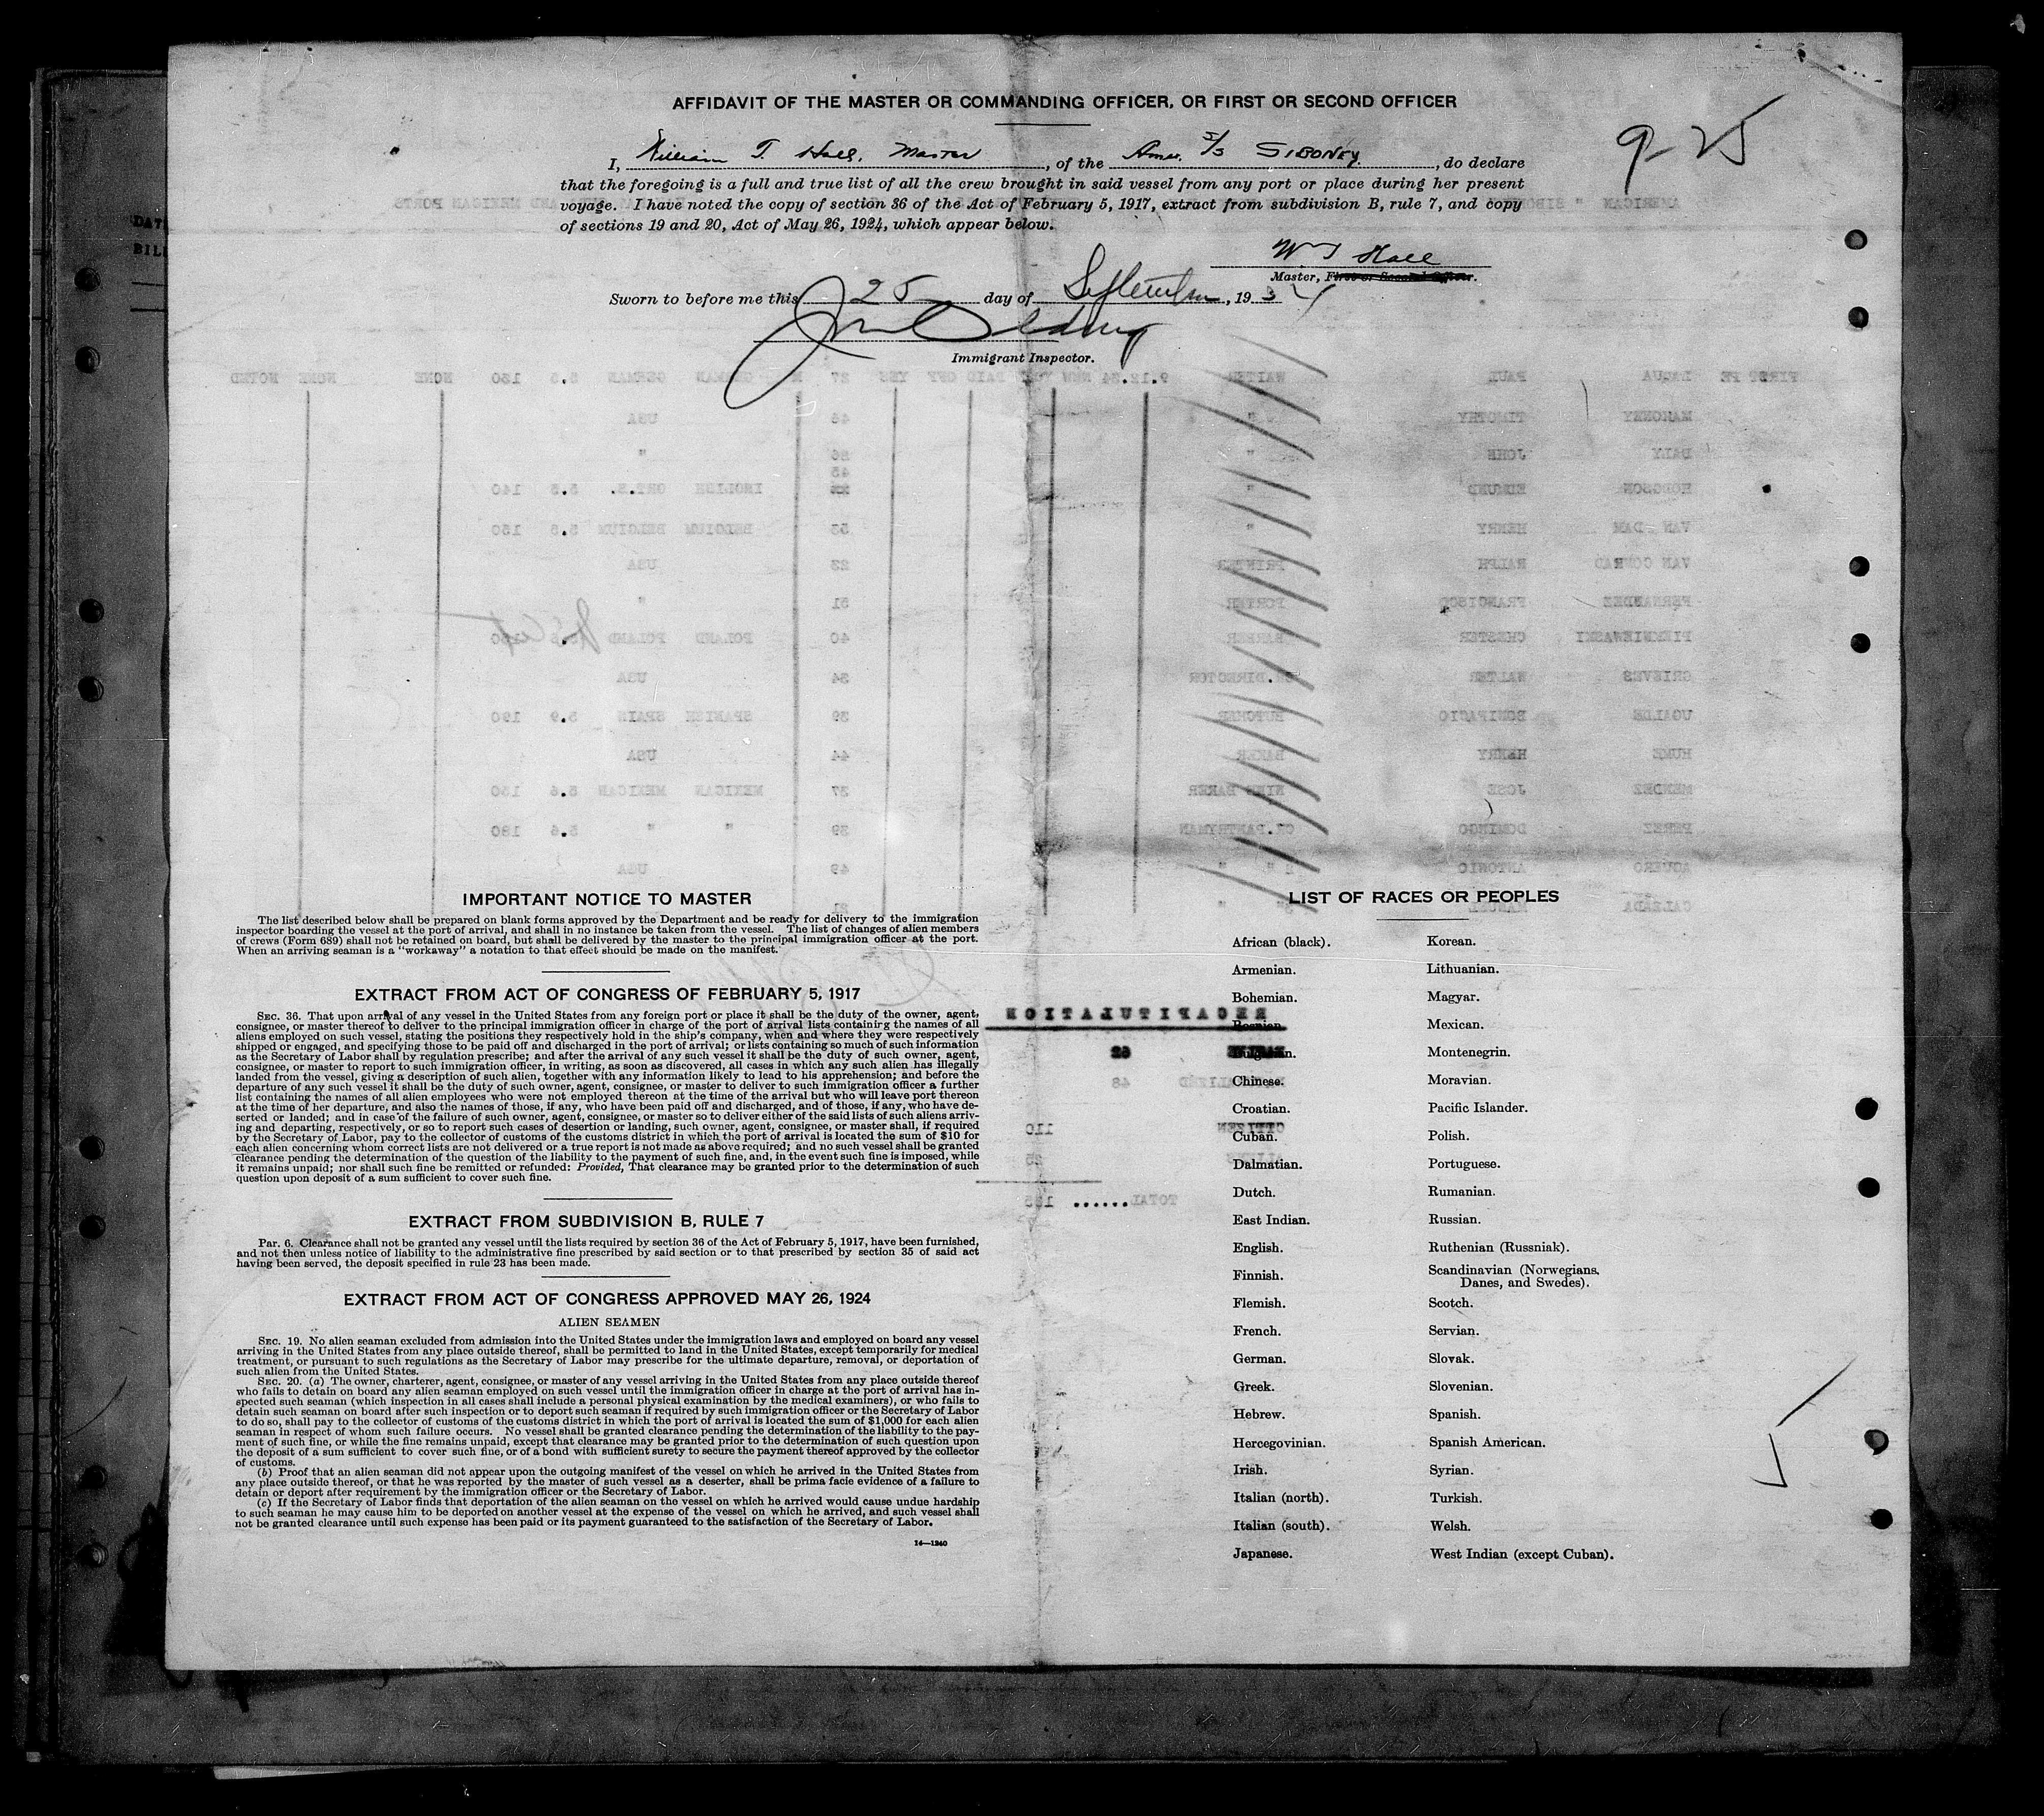 AFFIDAVIT OF THE MASTER OR COMMANDING OFFICER, OR FIRST OR SECOND OFFICER
9-25
I, William T. Hall, Master, of the Amer. S/S SIBONEY, do declare
that the foregoing is a full and true list of all the crew brought in said vessel from any port or place during her present
voyage. I have noted the copy of section 36 of the Act of February 5, 1917, extract from subdivision B, rule 7, and copy
of sections 19 and 20, Act of May 26, 1924, which appear below.
Wm T Hall
Master, First or Second Officer.
Sworn to before me this 25 day of September, 1934
Immigrant Inspector.
IMPORTANT NOTICE TO MASTER
The list described below shall be prepared on blank forms approved by the Department and be ready for delivery to the immigration
inspector boarding the vessel at the port of arrival, and shall in no instance be taken from the vessel. The list of changes of alien members
of crews (Form 689) shall not be retained on board, but shall be delivered by the master to the principal immigration officer at the port.
When an arriving seaman is a "workaway" a notation to that effect should be made on the manifest.
EXTRACT FROM ACT OF CONGRESS OF FEBRUARY 5, 1917
SEC. 36. That upon arrival of any vessel in the United States from any foreign port or place it shall be the duty of the owner, agent,
consignee, or master thereof to deliver to the principal immigration officer in charge of the port of arrival lists containing the names of all
aliens employed on such vessel, stating the positions they respectively hold in the ship's company, when and where they were respectively
shipped or engaged, and specifying those to be paid off and discharged in the port of arrival; or lists containing so much of such information
as the Secretary of Labor shall by regulation prescribe; and after the arrival of any such vessel it shall be the duty of such owner, agent,
consignee, or master to report to such immigration officer, in writing, as soon as discovered, all cases in which any such alien has illegally
landed from the vessel, giving a description of such alien, together with any information likely to lead to his apprehension; and before the
departure of any such vessel it shall be the duty of such owner, agent, consignee, or master to deliver to such immigration officer a further
list containing the names of all alien employees who were not employed thereon at the time of the arrival but who will leave port thereon
at the time of her departure, and also the names of those, if any, who have been paid off and discharged, and of those, if any, who have de-
serted or landed; and in case of the failure of such owner, agent, consignee, or master so to deliver either of the said lists of such aliens arriv-
ing and departing, respectively, or so to report such cases of desertion or landing, such owner, agent, consignee, or master shall, if required
by the Secretary of Labor, pay to the collector of customs of the customs district in which the port of arrival is located the sum of $10 for
each alien concerning whom correct lists are not delivered or a true report is not made as above required; and no such vessel shall be granted
clearance pending the determination of the question of the liability to the payment of such fine, and, in the event such fine is imposed, while
it remains unpaid; nor shall such fine be remitted or refunded: Provided, That clearance may be granted prior to the determination of such
question upon deposit of a sum sufficient to cover such fine.
EXTRACT FROM SUBDIVISION B, RULE 7
Par. 6. Clearance shall not be granted any vessel until the lists required by section 36 of the Act of February 5, 1917, have been furnished,
and not then unless notice of liability to the administrative fine prescribed by said section or to that prescribed by section 35 of said act
having been served, the deposit specified in rule 23 has been made.
EXTRACT FROM ACT OF CONGRESS APPROVED MAY 26, 1924
ALIEN SEAMEN
SEC. 19. No alien seaman excluded from admission into the United States under the immigration laws and employed on board any vessel
arriving in the United States from any place outside thereof, shall be permitted to land in the United States, except temporarily for medical
treatment, or pursuant to such regulations as the Secretary of Labor may prescribe for the ultimate departure, removal, or deportation of
such alien from the United States.
SEC. 20. (a) The owner, charterer, agent, consignee, or master of any vessel arriving in the United States from any place outside thereof
who fails to detain on board any alien seaman employed on such vessel until the immigration officer in charge at the port of arrival has in-
spected such seaman (which inspection in all cases shall include a personal physical examination by the medical examiners), or who fails to
detain such seaman on board after such inspection or to deport such seaman if required by such immigration officer or the Secretary of Labor
to do so, shall pay to the collector of customs of the customs district in which the port of arrival is located the sum of $1,000 for each alien
seaman in respect of whom such failure occurs. No vessel shall be granted clearance pending the determination of the liability to the pay-
ment of such fine, or while the fine remains unpaid, except that clearance may be granted prior to the determination of such question upon
the deposit of a sum sufficient to cover such fine, or of a bond with sufficient surety to secure the payment thereof approved by the collector
of customs.
(b) Proof that an alien seaman did not appear upon the outgoing manifest of the vessel on which he arrived in the United States from
any place outside thereof, or that he was reported by the master of such vessel as a deserter, shall be prima facie evidence of a failure to
detain or deport after requirement by the immigration officer or the Secretary of Labor.
(c) If the Secretary of Labor finds that deportation of the alien seaman on the vessel on which he arrived would cause undue hardship
to such seaman he may cause him to be deported on another vessel at the expense of the vessel on which he arrived, and such vessel shall
not be granted clearance until such expense has been paid or its payment guaranteed to the satisfaction of the Secretary of Labor.
14—1240
LIST OF RACES OR PEOPLES
African (black). Korean.
Armenian. Lithuanian.
Bohemian. Magyar.
Bosnian. Mexican.
Bulgarian. Montenegrin.
Chinese. Moravian.
Croatian. Pacific Islander.
Cuban. Polish.
Dalmatian. Portuguese.
Dutch. Rumanian.
East Indian. Russian.
English. Ruthenian (Russniak).
Finnish. Scandinavian (Norwegians,
Danes, and Swedes).
Flemish. Scotch.
French. Servian.
German. Slovak.
Greek. Slovenian.
Hebrew. Spanish.
Hercegovinian. Spanish American.
Irish. Syrian.
Italian (north). Turkish.
Italian (south). Welsh.
Japanese. West Indian (except Cuban).